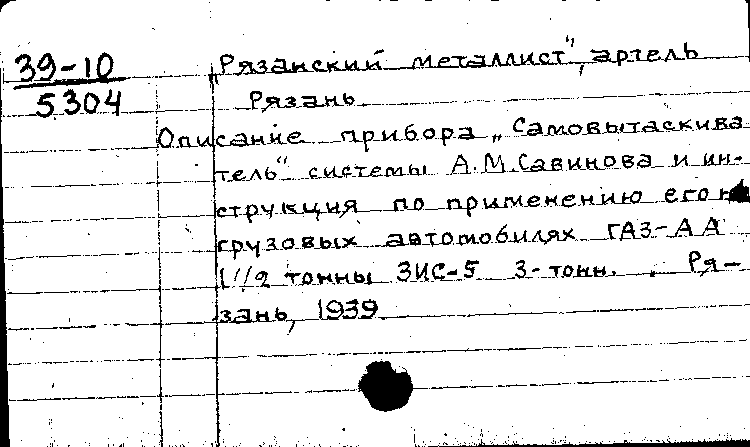 39-10
5304
„Рязанский металлист", артель
Рязань.
Описание прибора „Самовытаскива
тель" системы А.М.Савинова и ин-
струкция по применению его н
грузовых автомобилях ГАЗ-АА
1 1/2 тонны ЗИС-5 3-тонн. . Ря-
зань, 1939.